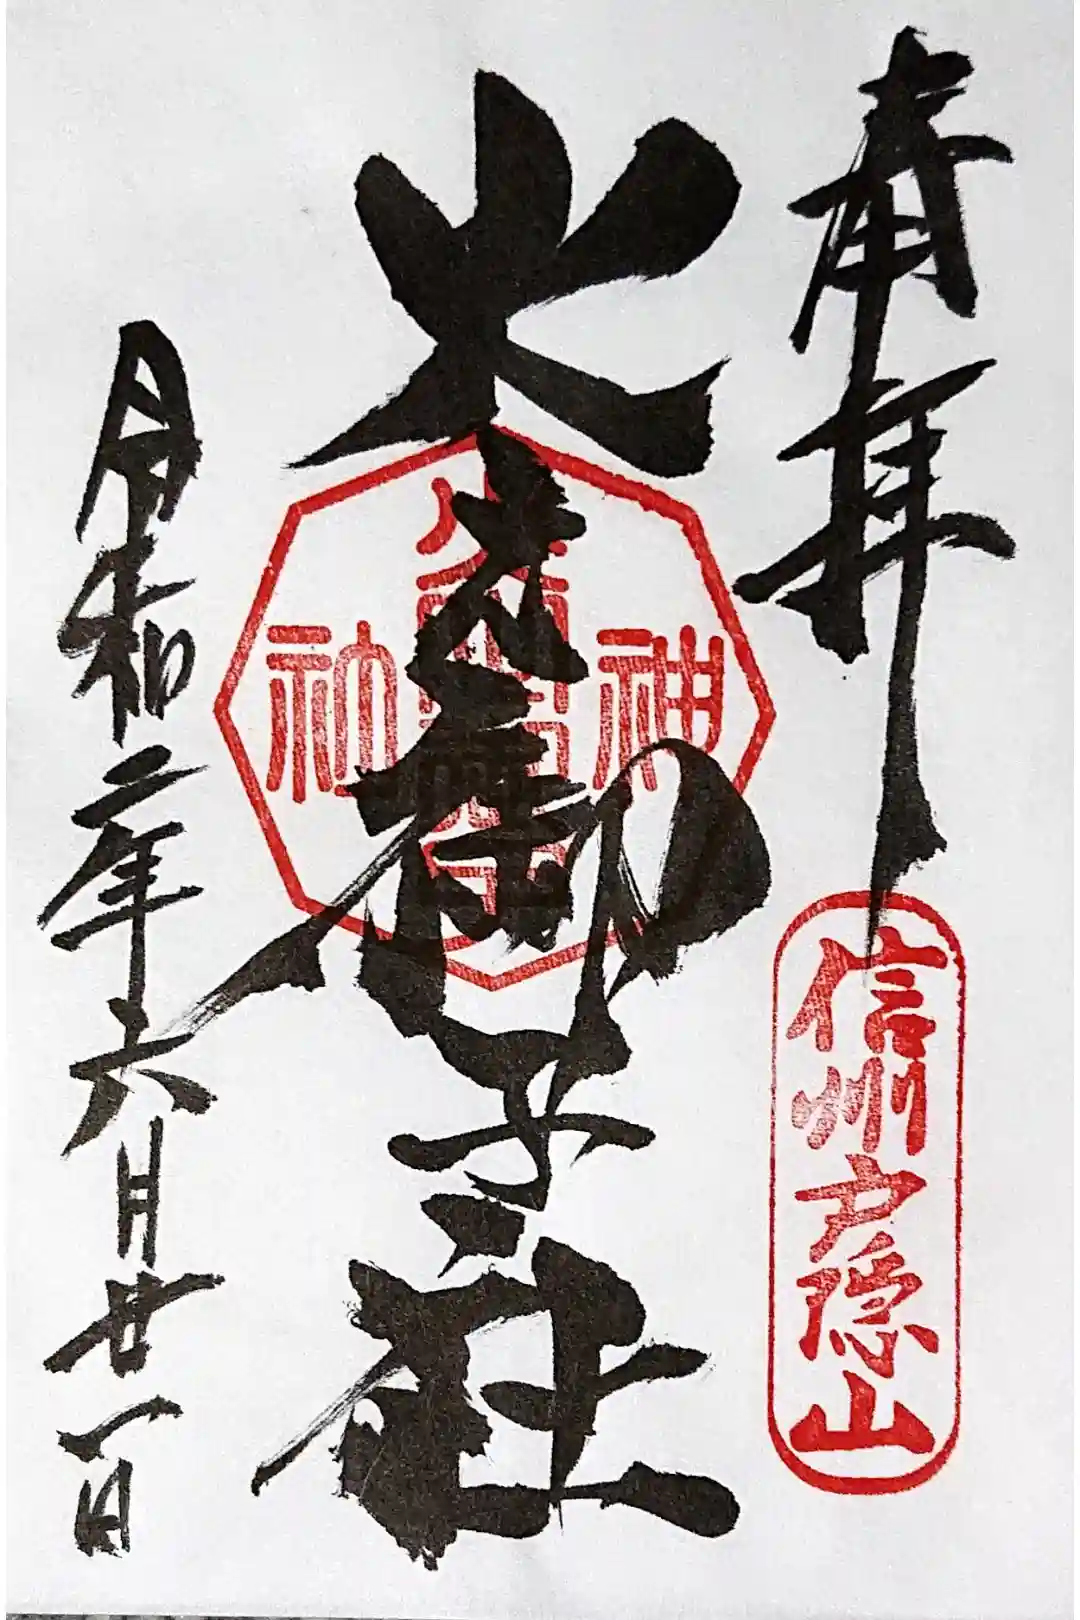 奉拝
信州戸隠山
火之御子社
神
社
令和二年六月廿一日